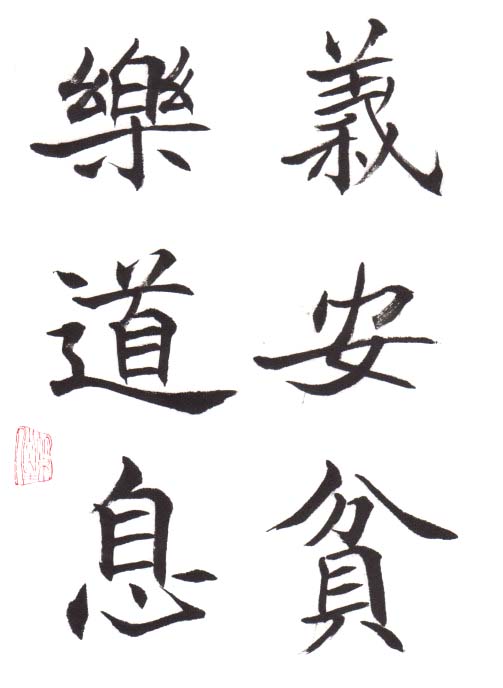 義安貧
樂道息